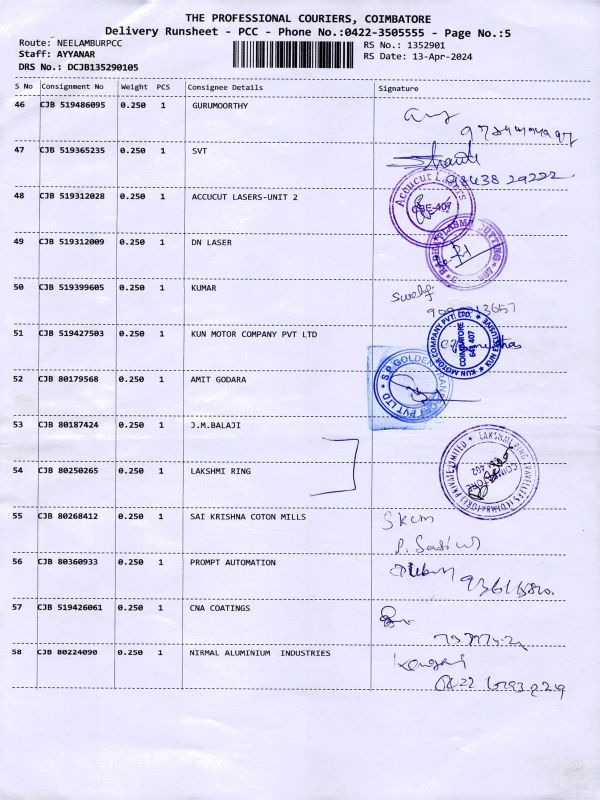 THE PROFESSIONAL COURIERS, COIMBATORE
Delivery Runsheet - PCC - Phone No.:0422-3505555 - Page No.:5
Route: NEELAMBURPCC
RS No.: 1352901
Staff: AYYANAR
RS Date: 13-Apr-2024
DRS No.: DCJB135290105
S No Consignment No Weight PCS Consignee Details Signature
46 CJB 519486095 0.250 1 GURUMOORTHY
47 CJB 519365235 0.250 1 SVT
98438 29222
48 CJB 519312028 0.250 1 ACCUCUT LASERS-UNIT 2
Accucut Lasers
CBE-407
49 CJB 519312009 0.250 1 DN LASER
PLASMA CUTTING
50 CJB 519399605 0.250 1 KUMAR
51 CJB 519427503 0.250 1 KUN MOTOR COMPANY PVT LTD
KUN MOTOR COMPANY PVT. LTD.
COIMBATORE
641 407
52 CJB 80179568 0.250 1 AMIT GODARA
S.P. GOLDEN TRANSPORT PVT LTD
53 CJB 80187424 0.250 1 J.M.BALAJI
54 CJB 80250265 0.250 1 LAKSHMI RING
LAKSHMI RING TRAVELLERS (COIMBATORE) PRIVATE LIMITED
55 CJB 80268412 0.250 1 SAI KRISHNA COTON MILLS
Skcm
56 CJB 80360933 0.250 1 PROMPT AUTOMATION
57 CJB 519426061 0.250 1 CNA COATINGS
58 CJB 80224090 0.250 1 NIRMAL ALUMINIUM INDUSTRIES